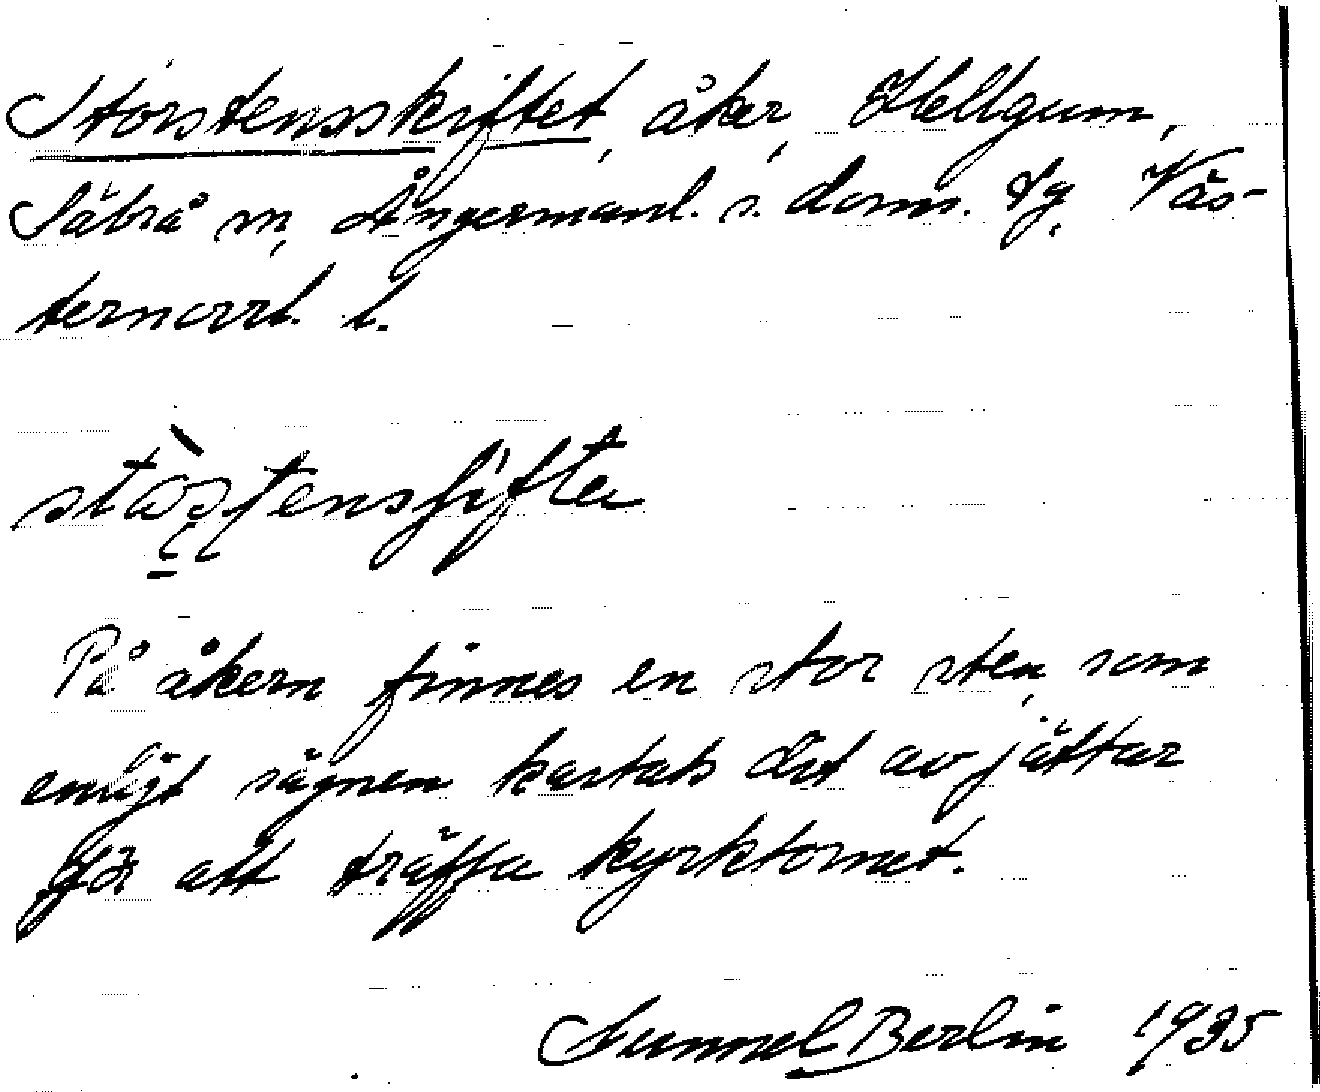 Storstensskiftet, åker, Hellgum,
Säbrå sn, Ångermanl. s. doms. tg. Väs-
ternorrl. l.
På åkern finnes en stor sten, som
enligt sägnen kastats dit av jättar
för att träffa kyrktornet.
Gunnel Berlin 1935